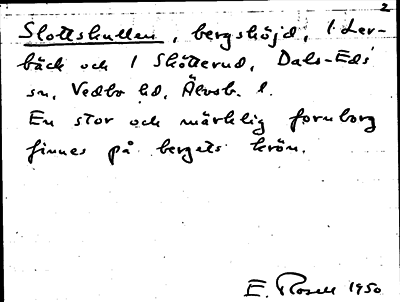 2
Slottskullen, bergshöjd, 1 Ler-
bäck och 1 Skötterud, Dals-Eds
sn, Vedbo hd, Älvsb. l.
En stor och märklig fornborg
finnes på bergets krön.
E. Rosell 1950